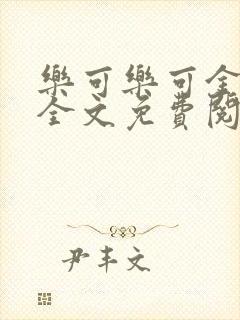 樂可樂可全
全文免費閱
尹丰文